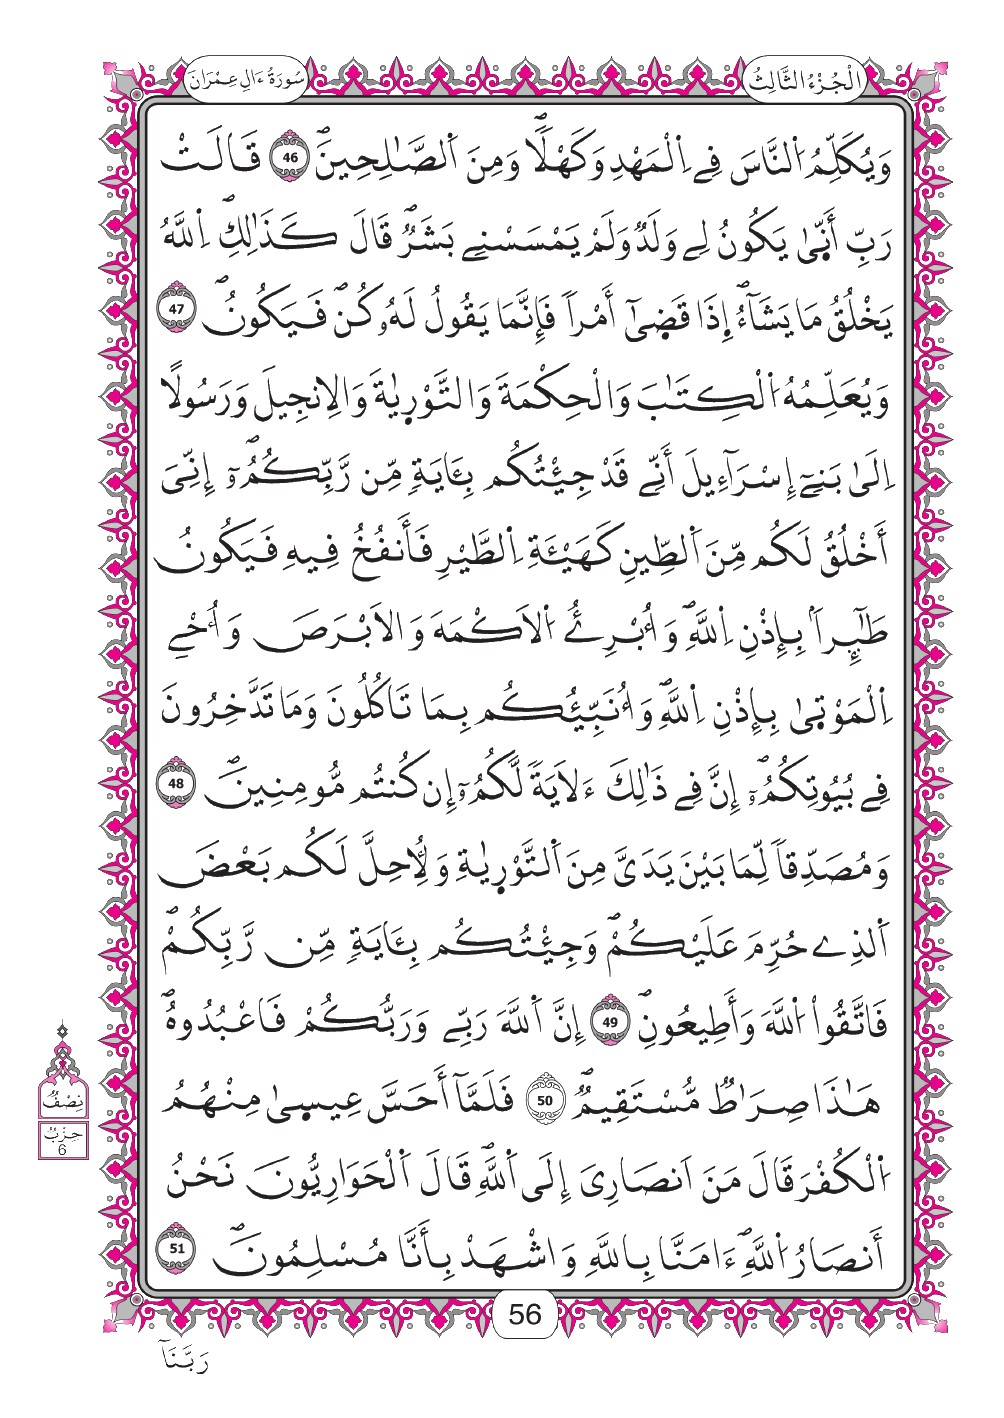 الْجُزْءُ الثَّالِثُ
سُورَةُ ءَالِ عِمْرَانَ
وَيُكَلِّمُ اُ۬لنَّاسَ فِے اِ۬لْمَهْدِ وَكَهْلاٗۖ وَمِنَ اَ۬لصَّٰلِحِينَۖ 46 قَالَتْ
رَبِّ أَنّ۪يٰ يَكُونُ لِے وَلَدٞ وَلَمْ يَمْسَسْنِے بَشَرٞۖ قَالَ كَذَٰلِكِۖ اِ۬للَّهُ
يَخْلُقُ مَا يَشَآءُۖ اِ۪ذَا قَض۪ىٰٓ أَمْراٗ فَإِنَّمَا يَقُولُ لَهُۥ كُنۖ فَيَكُونُۖ 47
وَيُعَلِّمُهُ اُ۬لْكِتَٰبَ وَالْحِكْمَةَ وَالتَّوْر۪يٰةَ وَالِانجِيلَ وَرَسُولاً
اِلَىٰ بَنِےٓ إِسْرَآءِيلَ أَنِّے قَدْ جِئْتُكُم بِـَٔايَةٖ مِّن رَّبِّكُمُۥٓۖ إِنِّيَ
أَخْلُقُ لَكُم مِّنَ اَ۬لطِّينِ كَهَيْـَٔةِ اِ۬لطَّيْرِ فَأَنفُخُ فِيهِ فَيَكُونُ
طَٰٓئِراَۢ بِإِذْنِ اِ۬للَّهِۖ وَأُبْرِۓُ اُ۬لَاكْمَهَ وَالَابْرَصَ وَأُحْيِ
اِ۬لْمَوْت۪يٰ بِإِذْنِ اِ۬للَّهِۖ وَأُنَبِّئُكُم بِمَا تَاكُلُونَ وَمَا تَدَّخِرُونَ
فِے بُيُوتِكُمُۥٓۖ إِنَّ فِے ذَٰلِكَ ءَلَايَةٗ لَّكُمُۥٓ إِن كُنتُم مُّومِنِينَۖ 48
وَمُصَدِّقاٗ لِّمَا بَيْنَ يَدَيَّ مِنَ اَ۬لتَّوْر۪يٰةِ وَلِأُحِلَّ لَكُم بَعْضَ
اَ۬لذِے حُرِّمَ عَلَيْكُمْۖ وَجِئْتُكُم بِـَٔايَةٖ مِّن رَّبِّكُمْۖ
فَاتَّقُواْ اُ۬للَّهَ وَأَطِيعُونِۖ 49 إِنَّ اَ۬للَّهَ رَبِّے وَرَبُّكُمْ فَاعْبُدُوهُۖ
هَٰذَا صِرَاطٞ مُّسْتَقِيمٞۖ 50 فَلَمَّآ أَحَسَّ عِيس۪يٰ مِنْهُمُ
اُ۬لْكُفْرَ قَالَ مَنَ اَنصَارِيَ إِلَى اَ۬للَّهِۖ قَالَ اَ۬لْحَوَارِيُّونَ نَحْنُ
أَنصَارُ اُ۬للَّهِۖ ءَامَنَّا بِاللَّهِ وَاشْهَدْ بِأَنَّا مُسْلِمُونَۖ 51
نِصْفُ
حِزْبُ
6
56
رَبَّنَآ